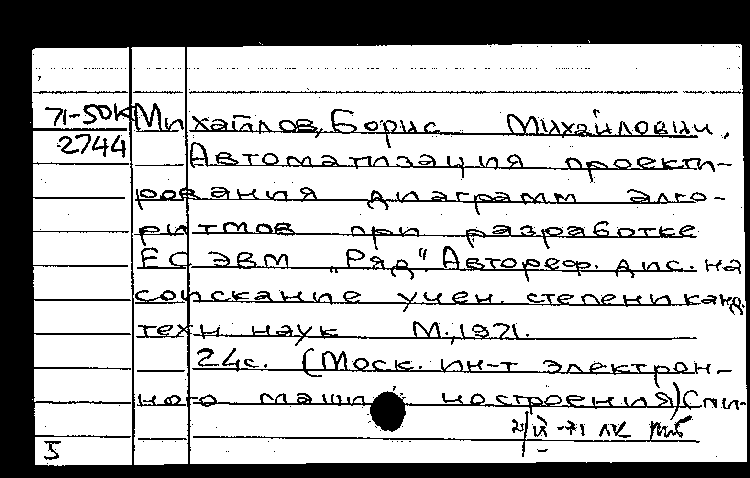 71-50К Михайлов, Борис Михайлович.
2744 Автоматизация проекти-
рования диаграмм алго-
ритмов при разработке
ЕС ЭВМ „Ряд". Автореф. дис. на
соискание учен. степени канд.
техн. наук М., 1971.
24с. (Моск. ин-т электрон-
ного машиностроения) Спи-
5